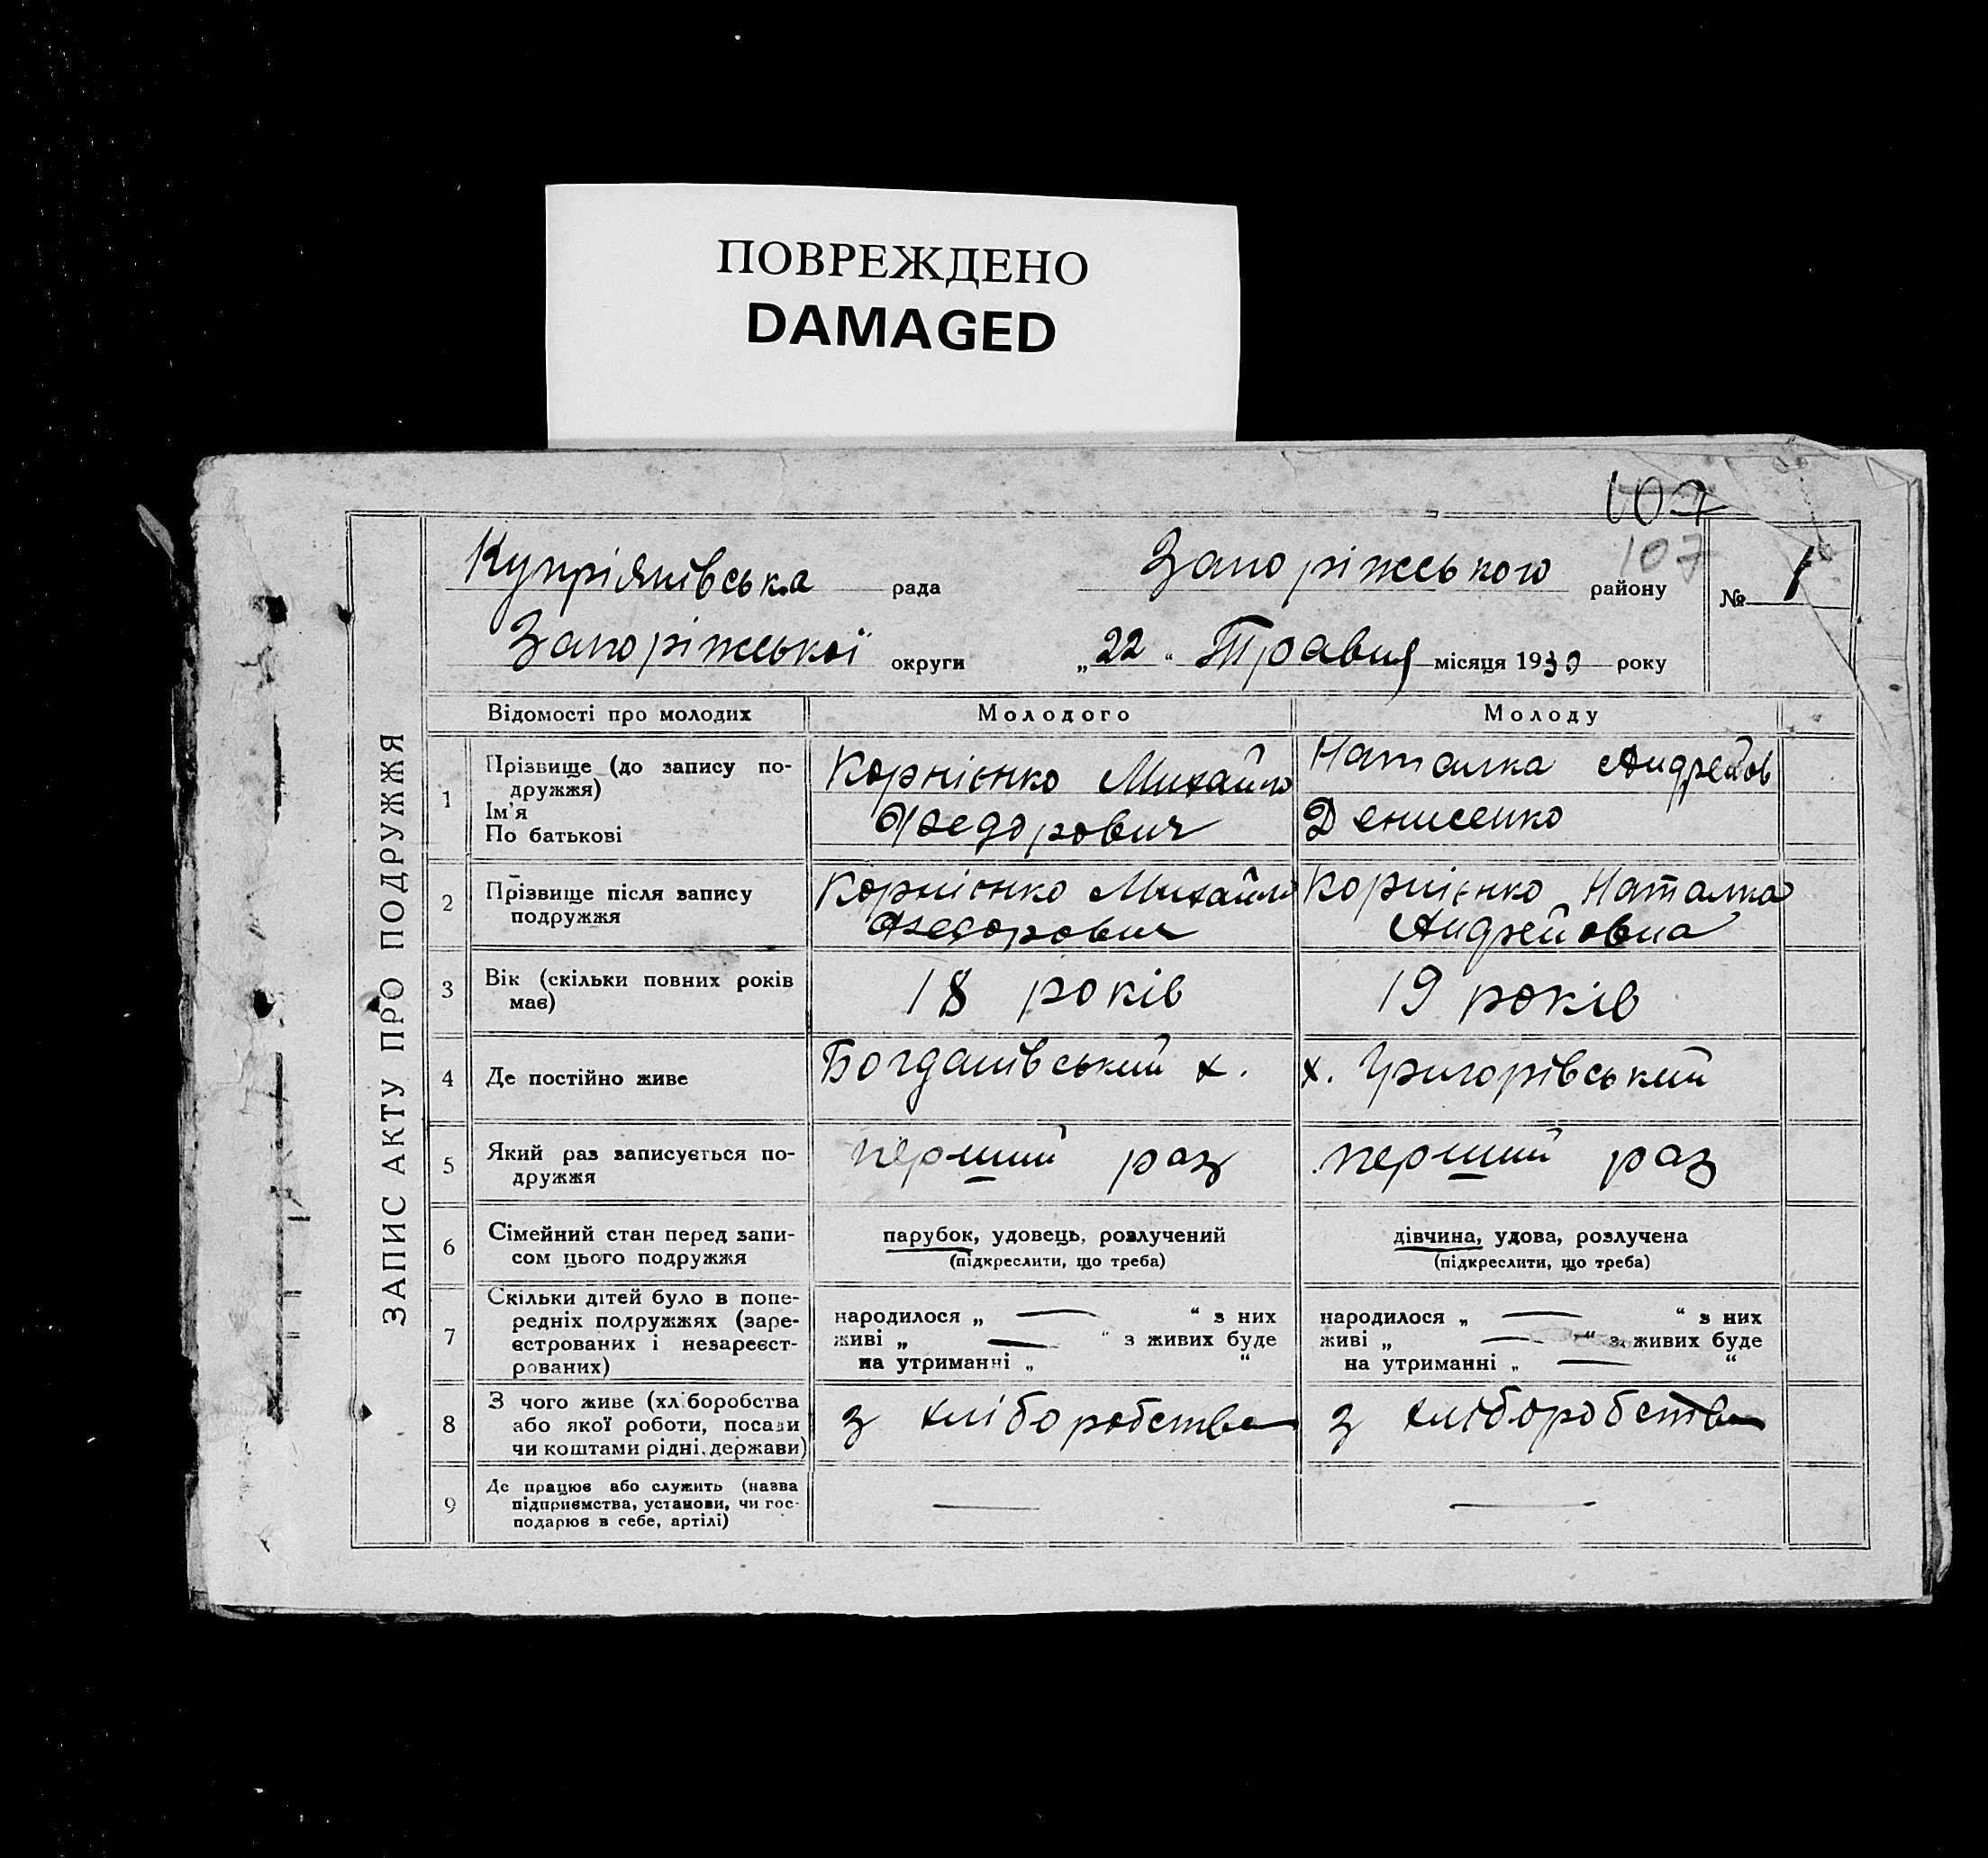 ПОВРЕЖДЕНО
DAMAGED
107
107
Купріянівська рада Запоріжського району № 1
Запоріжської округи „22" Травня місяця 1930 року
ЗАПИС АКТУ ПРО ПОДРУЖЖЯ
Відомості про молодих Молодого Молоду
1 Прізвище (до запису по-
дружжя)
Ім'я
По батькові
Корнієнко Михайло
Федорович
Наталка Андрейов
Денисенко
2 Прізвище після запису
подружжя
Корнієнко Михайло
Федорович
Корнієнко Наталка
Андрейовна
3 Вік (скільки повних років
має)
18 років
19 років
4 Де постійно живе
Богданівський х.
х. Григорівський
5 Який раз записується по-
дружжя
перший раз
перший раз
6 Сімейний стан перед запи-
сом цього подружжя
парубок, удовець, розлучений
(підкреслити, що треба)
дівчина, удова, розлучена
(підкреслити, що треба)
7 Скільки дітей було в попе-
редніх подружжях (заре-
єстрованих і незареєст-
рованих)
народилося „ — " з них
живі „ — " з живих буде
на утриманні „ "
народилося „ — " з них
живі „ — " з живих буде
на утриманні „ — "
8 З чого живе (хліборобства
або якої роботи, посади
чи коштами рідні, держави)
з хліборобства
з хліборобства
9 Де працює або служить (назва
підприємства, установи, чи гос-
подарює в себе, артілі)
—
—